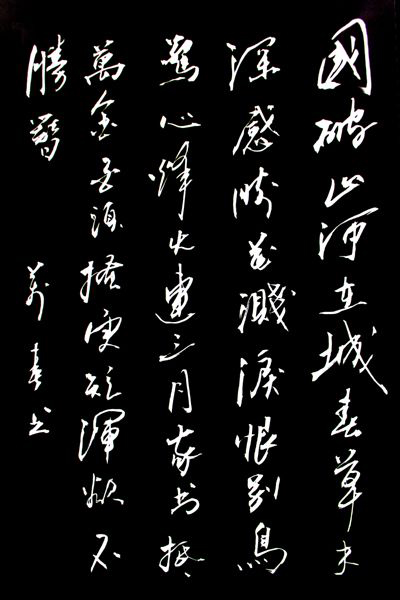 國破山河在城春草木
深感時花濺淚恨別鳥
驚心烽火連三月家書抵
萬金白頭搔更短渾欲不
勝簪
春書